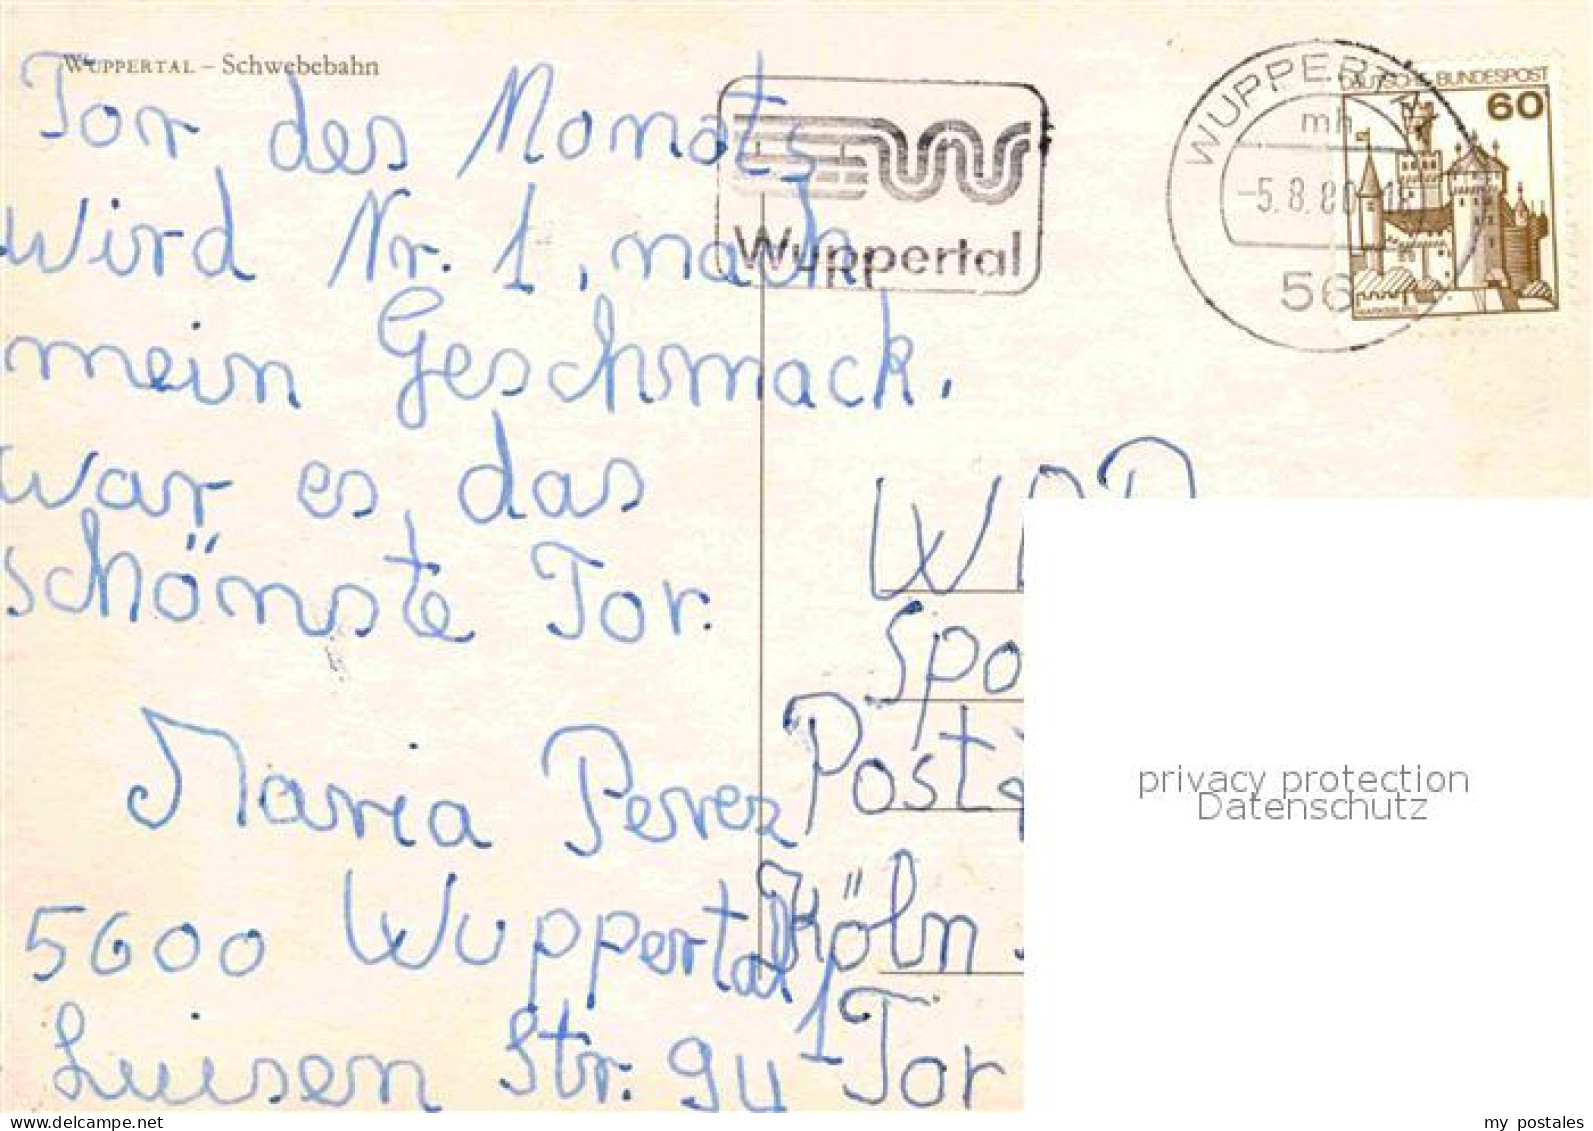 WUPPERTAL – Schwebebahn
Tor des Monats
wird Nr. 1, nach
mein Geschmack.
war es das
schönste Tor.
Maria Perez
5600 Wuppertal 1
Luisen Str. 94
Wuppertal
WUPPERTAL
mh
-5.8.80
56
DEUTSCHE BUNDESPOST
60
MARKSBURG
WDR
Spo
Post
Köln
Tor
privacy protection
Datenschutz
www.delcampe.net
my_postales